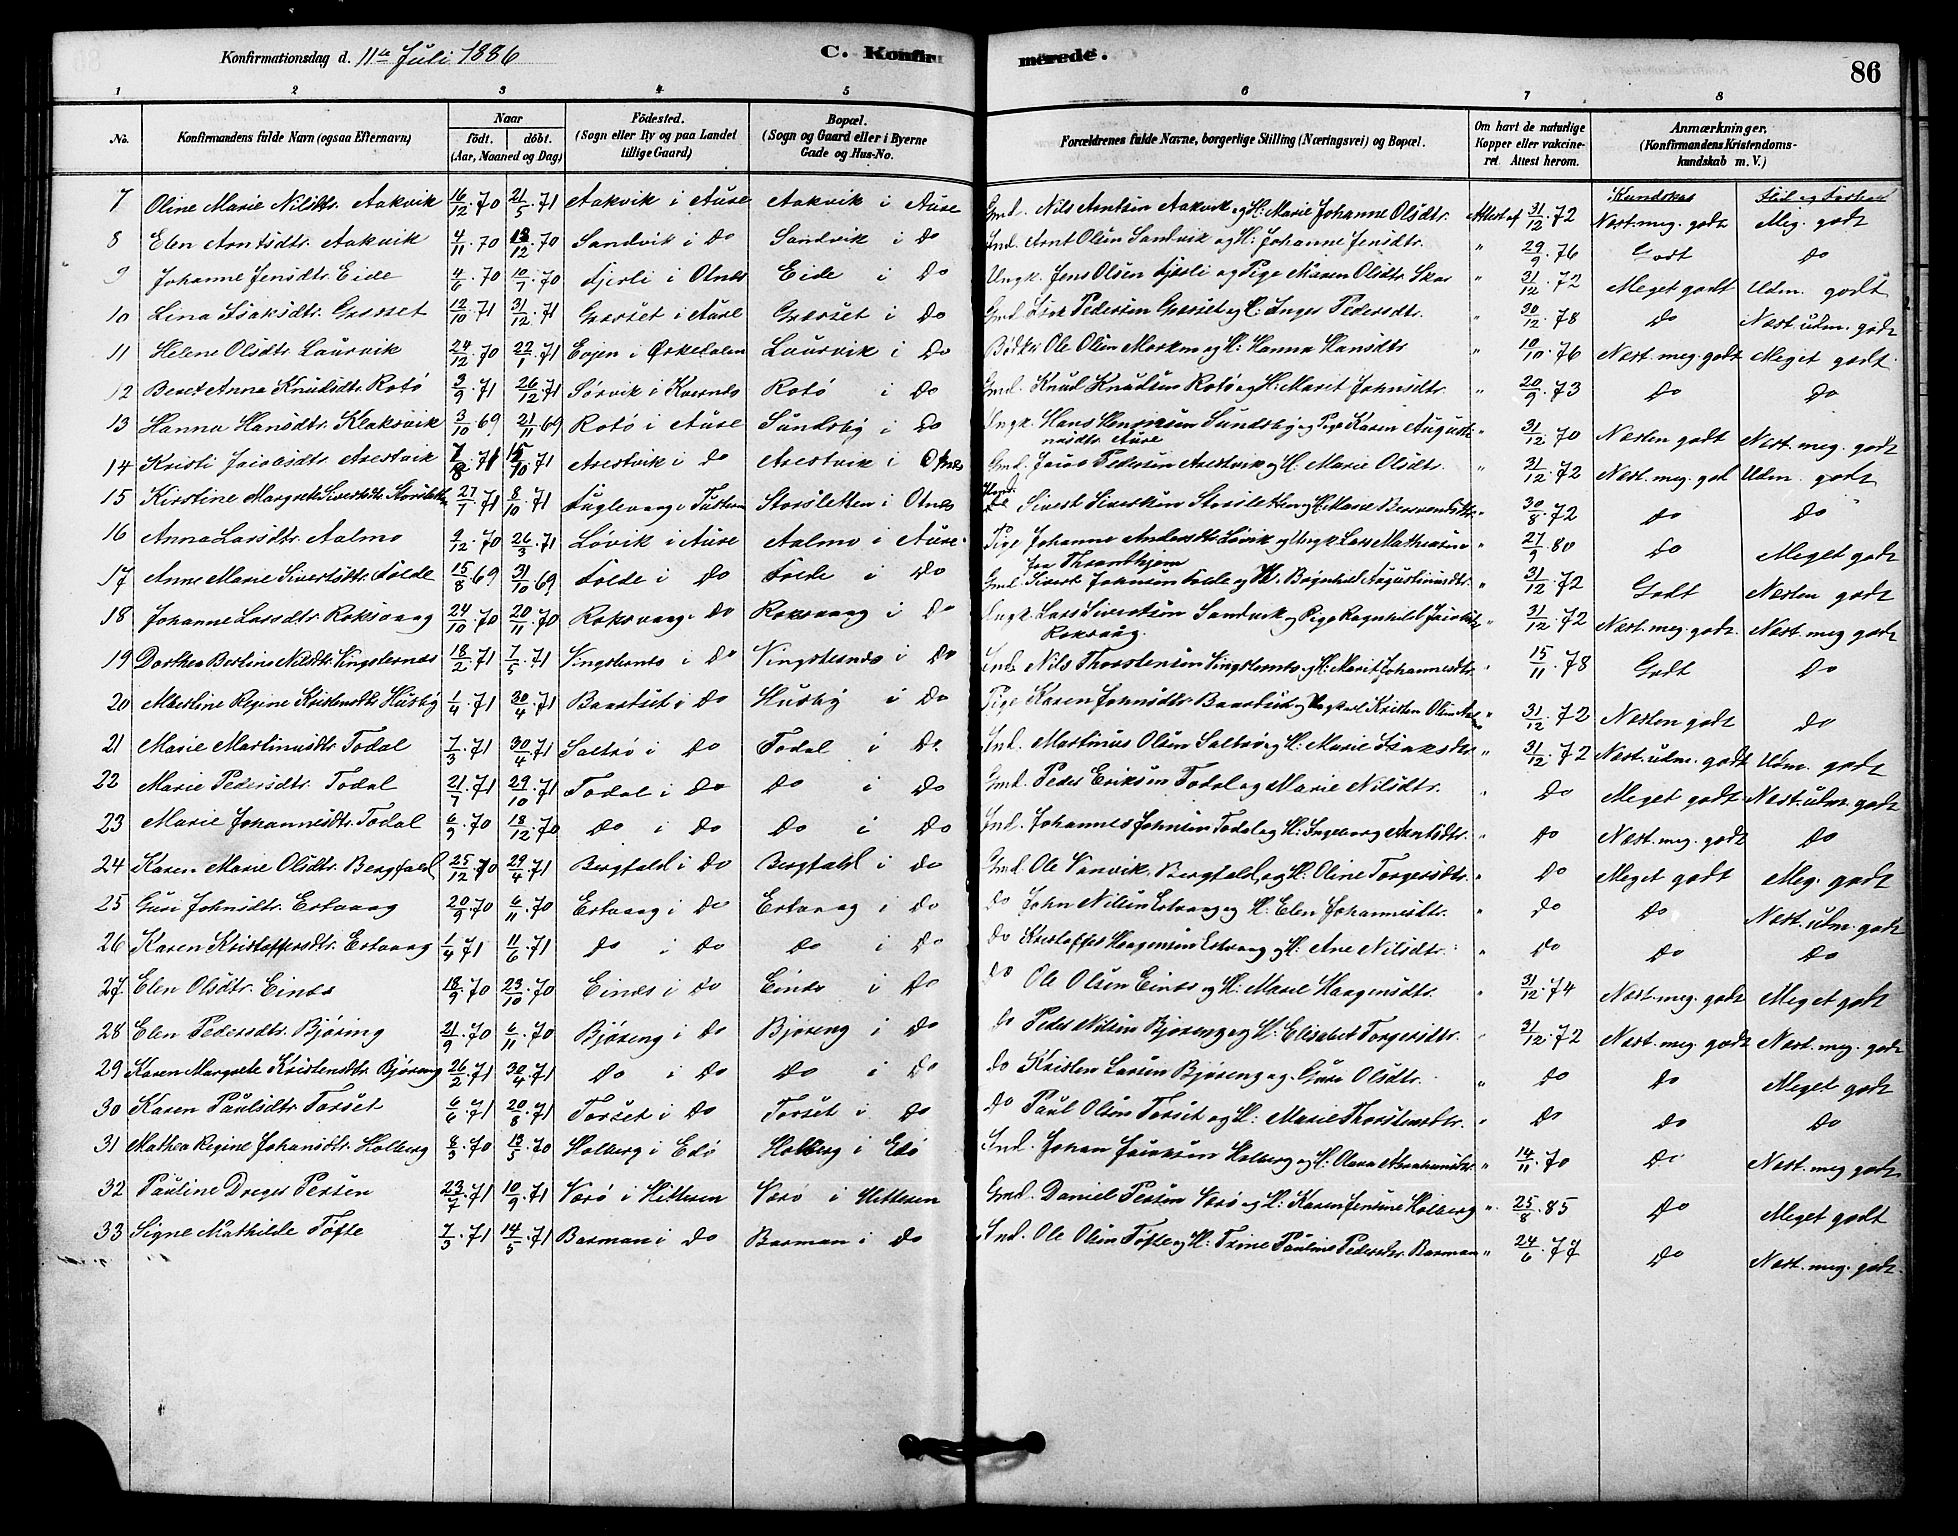 Konfirmationsdag d. 11te Juli 1886 C. Konfirmerede. 86
1 2 3 4 5 6 7 8
No. Konfirmandens fulde Navn (ogsaa Efternavn) Naar født. døbt. (Aar, Maaned og Dag) Fødested. (Sogn eller By og paa Landet tillige Gaard) Bopæl. (Sogn og Gaard eller i Byerne Gade og Hus-No. Forældrenes fulde Navne, borgerlige Stilling (Næringsvei) og Bopæl. Om havt de naturlige Kopper eller vakcineret. Attest herom. Anmærkninger. (Konfirmandens Kristendomskundskab m. V.)
Kundskab Flid og Forhold
7 Oline Marie Nilsdtr. Aakvik 16/12.70 21/5.71 Aakvik i Aure Aakvik i Aure Gmd. Nils Arntsen Aakvik og H: Marie Johanne Olsdtr. Attest af 31/12.72 Næst. meg. godt Meg. godt
8 Elen Arntsdtr. Aakvik 4/11.70 18/12.70 Sandvik i Do Sandvik i Do Ind. Arnt Olsen Sandvik og H: Johanne Jensdtr. " 29/9.76 Godt Do
9 Johanne Jensdtr. Eide 4/6.70 10/7.70 Fjerli i Otnes Eide i Do Ungk. Jens Olsen Fjerli og Pige Maren Olsdtr. Skar " 31/12.72 Meget godt Udm. godt
10 Lena Isaksdtr. Græset 12/10.71 31/12.71 Græset i Aure Græset i Do Gmd. Isak Pedersen Græset og H: Inger Pedersdtr. " 30/12.78 Do Næst. udm. godt
11 Helene Olsdtr. Laurvik 24/12.70 22/1.71 Evjen i Ørkedalen Laurvik i Do Bødker Ole Olsen Morken og H: Hanna Hansdtr " 10/10.76 Næst. meg. godt Meget godt
12 Beret Anna Knudsdtr. Rotø 3/9.71 26/12.71 Sørvik i Kvernes Rotø i Do Gmd. Knud Knudsen Rotø og H: Marit Johnsdtr. " 20/9.73 Do Do
13 Hanna Hansdtr. Klaksvik 3/10.69 21/11.69 Rotø i Aure Sundsby i Do Ungk. Hans Hansen Sundsby og Pige Karen Augusti-
nusdtr. Aure " 31/12.70 Næsten godt Næst. meg. godt
14 Kristi Jacobsdtr. Arestvik 7/8.71 15/10.71 Arestvik i Do Arestvik i Otnes Gmd. Jacob Pedersen Arestvik og H: Marie Olsdtr. " 31/12.72 Næst. meg. god Udm. godt
15 Kirstine Margrete Sivertsdtr. Storsletten 27/7.71 8/10.71 Fuglevaag i Tustern Storsletten i Otnes Sivert Sivertsen Storsletten og H: Marie " 30/8.72 Do Do
16 Anna Larsdtr. Aalmo 9/12.70 26/3.71 Løvik i Aure Aalmo i Aure Pige Johanne Andersdtr. Løvik og Ungk. Lars Mathiasen
fra Throndhjem " 27/9.80 Do Meget godt
17 Anne Marie Sivertsdtr. Folde 15/8.69 31/10.69 Folde i Do Folde i Do Gmd. Sivert Johnsen Folde og H: Ragnhild Augustinusdtr. " 31/12.72 Godt Næsten godt
18 Johanne Larsdtr. Roksvaag 24/10.70 20/11.70 Roksvaag i Do Roksvaag i Do Ungk. Lars Sivertsen Sandvik og Pige Ragnhild Jacobsdtr.
Roksvaag. " 31/12.72 Næst. meg. godt Næst. meg godt
19 Dorthea Bertine Nilsdtr. Vingsternes 18/2.71 7/5.71 Vingsternes i Do Vingsternes i Do Ind. Nils Thorstensen Vingsternes og H: Marit Johannesdtr " 15/11.78 Godt Do
20 Albertine Regine Kristensdtr. Husby 1/4.71 30/4.71 Baardset i Do Husby i Do Pige Karen Johnsdtr. Baardset og Ungkarl Kristen Olsen " 31/12.72 Næsten godt Do
21 Marie Martinusdtr. Todal 7/3.71 30/4.71 Saltrø i Do Todal i Do Ind. Martinus Olsen Saltrø og H: Marie Isaksdtr " 31/12.72 Næst. udm. godt Udm. godt
22 Marie Pedersdtr. Todal 21/7.71 29/10.71 Todal i Do Do i Do Gmd. Peder Eriksen Todal og Marie Nilsdtr. " Do Meget godt Næst. udm. godt
23 Marie Johannesdtr. Todal 6/9.70 18/12.70 Do i Do Do i Do Ind. Johannes Johnsen Todal og H: Ingeborg Arntsdtr. " Do Næst. meg. godt Do
24 Karen Marie Olsdtr. Bergfald 25/12.70 29/4.71 Bergfald i Do Bergfald i Do Gmd. Ole Vanvik Bergfald, og H: Oline Torgersdtr. " Do Meget godt Meg. godt
25 Guri Johnsdtr. Ertvaag 20/9.70 6/11.70 Ertvaag i Do Ertvaag i Do Do John Nilsen Ertvaag og H: Elen Johannesdtr. " Do Do Næst. udm. godt
26 Karen Kristoffersdtr. Ertvaag 1/4.71 11/6.71 Do i Do Do i Do Do Kristoffer Haagensen Ertvaag og H: Ane Nilsdtr. " Do Do Do
27 Elen Olsdtr. Eines 18/9.70 23/10.70 Eines i Do Eines i Do Do Ole Olsen Eines og H: Marie Haagensdtr. " 31/12.74 Næst. meg. godt Meget godt
28 Elen Pedersdtr. Bjøring 21/9.70 6/11.70 Bjøreng i Do Bjøreng i Do Do Peder Nilsen Bjøreng og H: Elisabet Torgersdtr. " 31/12.72 Næst. meg. godt Næst. meg. godt
29 Karen Margrete Kristensdtr. Bjøreng 26/2.71 30/4.71 Do i Do Do i Do Do Kristen Larsen Bjøreng og Guri Olsdtr. " Do Do Meget godt
30 Karen Paulsdtr. Torset 6/6.71 20/8.71 Torset i Do Torset i Do Do Paul Olsen Torset og H: Marie Thorstensdtr. " Do Do Do
31 Mathea Regine Johansdtr. Holberg 8/3.70 13/5.70 Holberg i Edø Holberg i Edø Ind. Johan Jacobsen Holberg og H: Olava Abrahamsdtr. " 14/11.70 Do Næst. meg godt
32 Pauline Dreges Persen 23/7.71 10/9.71 Værø i Hitteren Værø i Hitteren Gmd. Daniel Persen Værø og H: Karen Jensine Holberg " 25/8.85 Do Meget godt
33 Signe Mathilde Tøfte 7/3.71 14/5.71 Barman i Do Barman i Do Ind. Ole Olsen Tøfte og H: Trine Pauline Pedersdtr. Barman " 24/6.77 Do Næst. meg. godt.